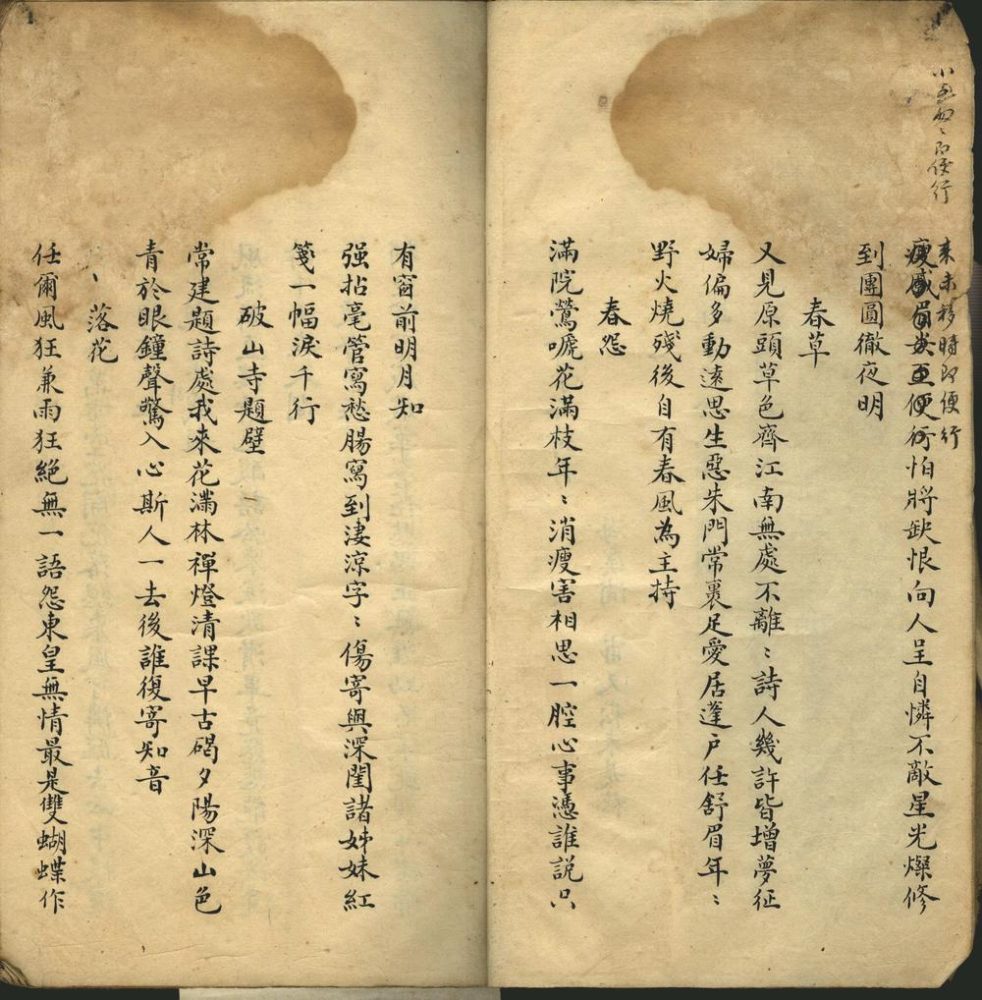 來未移時即便行
便行怕將缺恨向人呈自憐不敵星光燦修
到團圓徹夜明
春草
又見原頭草色齊江南無處不離〻詩人幾許皆增夢征
婦偏多動遠思生惡朱門常裹足愛居蓬戶任舒眉年〻
野火燒殘後自有春風為主持
春怨
滿院鶯嚦花滿枝年〻消瘦害相思一腔心事憑誰説只
有窗前明月知
强拈毫管寫愁腸寫到淒涼字〻傷寄與深閨諸姊妹紅
箋一幅淚千行
破山寺題壁
常建題詩處我來花滿林禪燈清課早古碣夕陽深山色
青於眼鐘聲驚入心斯人一去後誰復寄知音
、落花
任爾風狂兼雨狂絕無一語怨東皇無情最是雙蝴蝶作